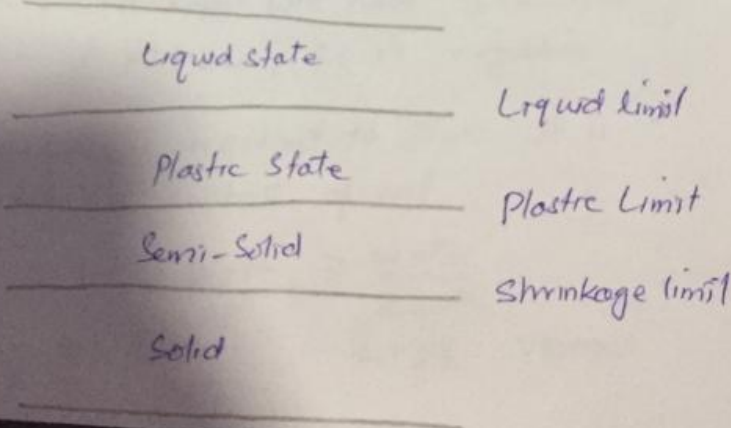 Liquid state
Liquid limit
Plastic State
Plastic Limit
Semi-Solid
Shrinkage limit
Solid